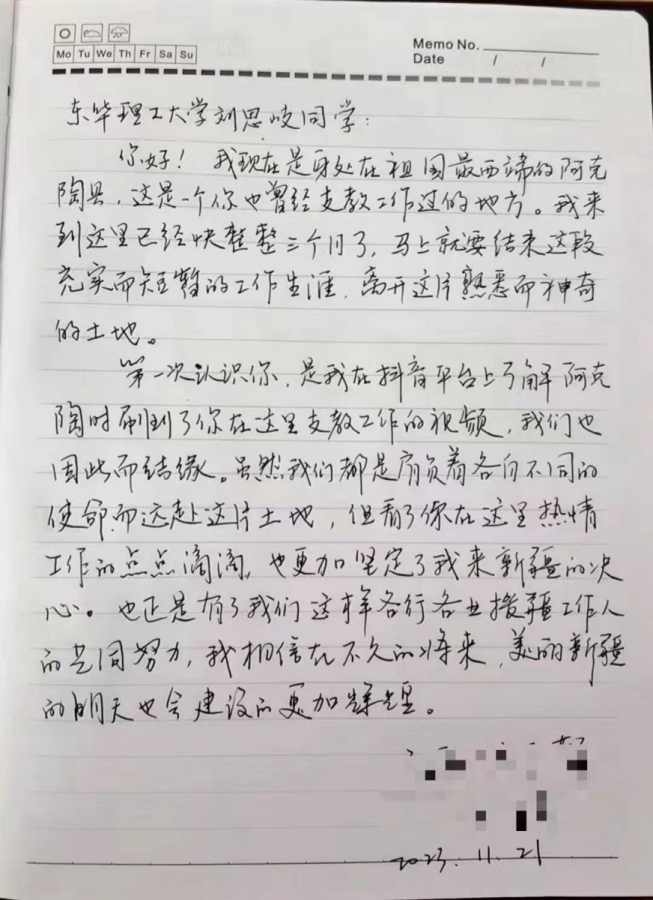 Mo Tu We Th Fr Sa Su
Memo No.
Date / /
东华理工大学刘思岐同学：
你好！我现在是身处在祖国最西端的阿克
陶县，这是一个你也曾经支教工作过的地方。我来
到这里已经快整整三个月了，马上就要结束这段
充实而短暂的工作生涯，离开这片熟悉而神奇
的土地。
第一次认识你，是我在抖音平台上了解阿克
陶时刷到了你在这里支教工作的视频，我们也
因此而结缘。虽然我们都是肩负着各自不同的
使命而远赴这片土地，但看了你在这里热情
工作的点点滴滴，也更加坚定了我来新疆的决
心。也正是有了我们这样各行各业援疆工作人
的共同努力，我相信在不久的将来，美丽新疆
的明天也会建设的更加辉煌。
2023.11.21